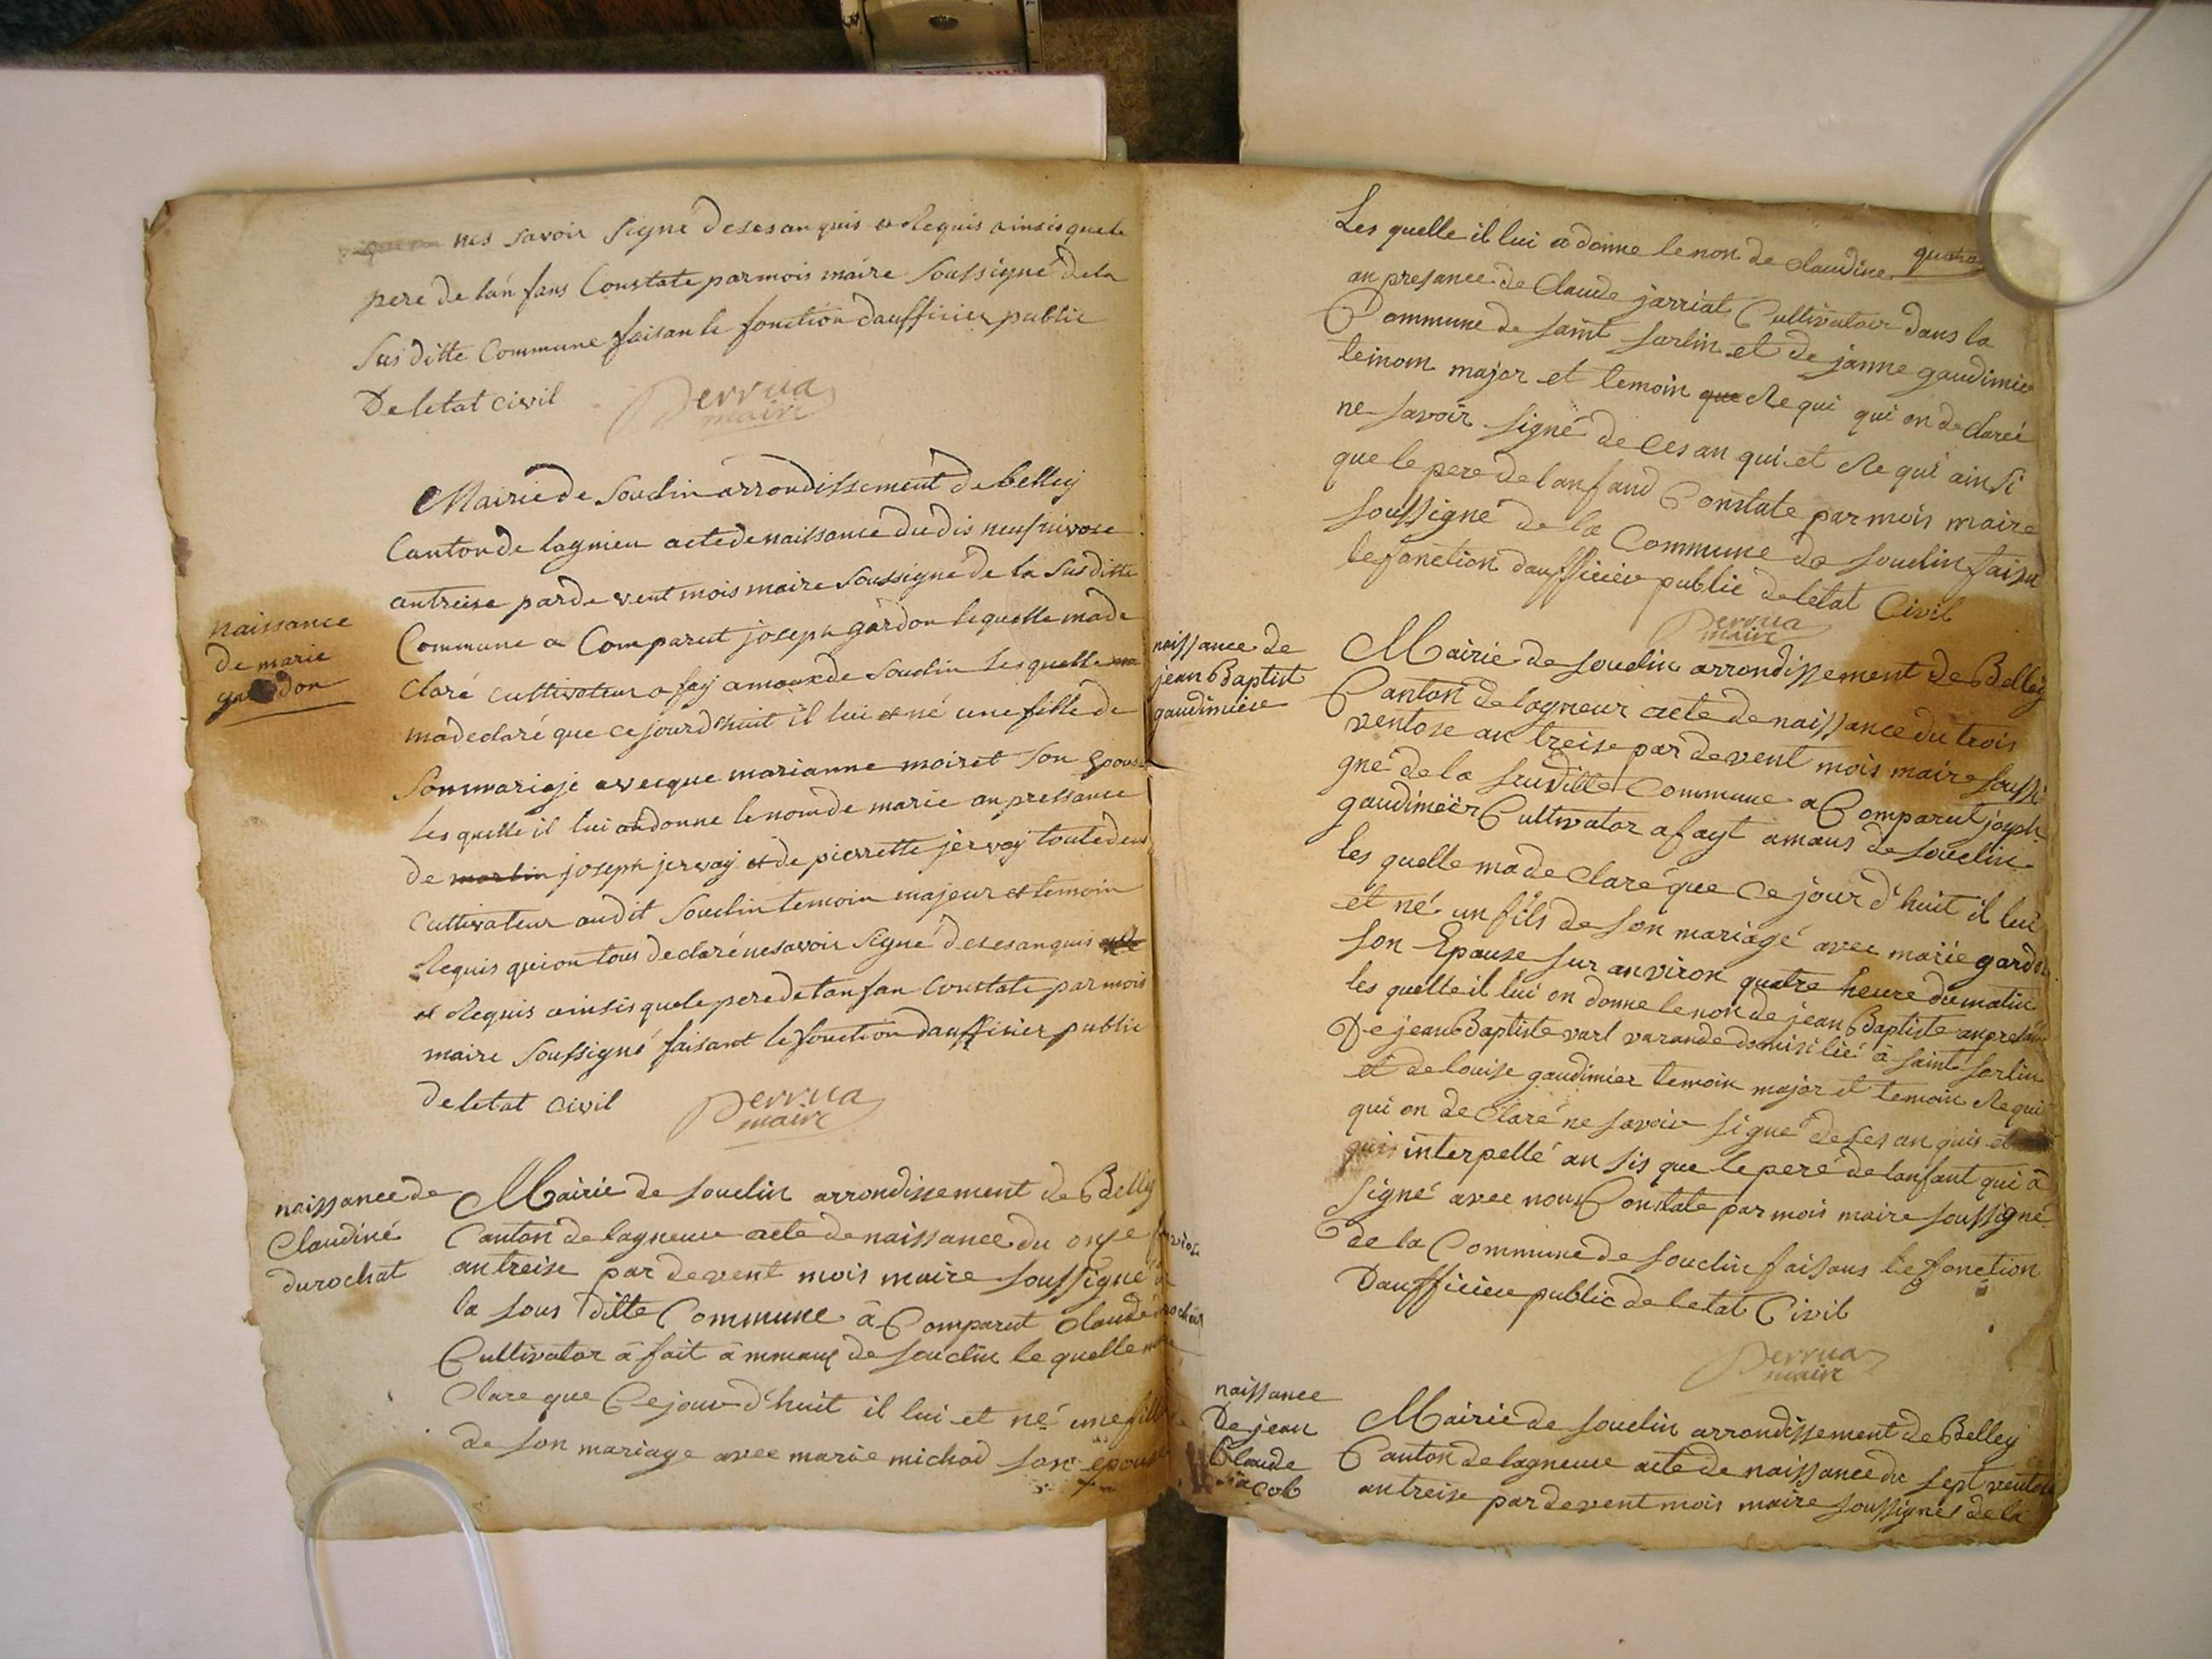 nes savoir signé deses an quis et Requis ainsis quele
pere de lán fans Constate par mois maire soussigné dela
susditte Commune faisan le fonction daufficier public
De letat civil
Perrua
maire
naissance
de marie
gardon
Mairie de Souclin arrondissement de belley
Canton de lagnieu acte de naissance du dis neuf nivose
antreise par devent mois maire soussigne de la susditte
Commune a Comparut joseph gardon lequelle made
claré cultivateur a fay amaux de Souclin lesquelle
madeclaré que ce jourdhuit il lui et né une fille de
Sonmariaje avecque marianne moiret son Epouse
lesquelle il lui an donne le nom de marie an pressance
de martin joseph jervay et de pierrette jervay toutedeus
Cultivateur audit Souclin temoin majeur et temoin
Requis quion tous declaré nesavoir signé deses an quis
et Requis ainsis quele pere de lanfan Constate par mois
maire soussigné faisant le fonction daufficier public
de letat civil
Perrua
maire
naissance de
Claudiné
durochat
Mairie de souclin arrondissement de Belley
Canton de lagneuu acte de naissance du onse
antreise par devent mois maire soussigné
la sous ditte Commune â Comparut Claude
Cultivator â fait âmmaux de souclin le quelle
Clare que Cejour d'huit il lui et né une fille
de son mariage avec marie michod son epouse
Les quelle il lui a donne le non de Claudine
an presance de Claude jarriat Cultivatoir dans la
Commune de saint sorlin et de janne gaudimier
temoin major et temoin que Requi qui on declareé
ne savoir signé de Ces an qui et Requi ainsi
que le pere de lanfand Constate par mois maire
soussigné de la Commune de souclin faisa
le fonction daufficiér public de létat Civil
Perrua
maire
naissance de
jean Baptist
gaudimiere
Mairie de souclin arrondissement de Belley
Canton de lagneur acte de naissance du trois
ventose an treise par devent mois maire soussi
gné de la susditte Commune a Comparut joseph
gaudimeir Cultivator a fayt amaus de souclin
les quelle made Claré que Ce jour d'huit il lui
et né un fils de son mariagé avec marie gardon
son Epause sur anviron quatre heure du matin
les quelle il lui on donne le non de jean Baptiste anpresan
De jean Baptiste varl varande domisilié â saint sorlin
et de louise gaudimier temoin major et temoin Requi
qui on de Claré ne savoir signé de ses an quis et
quis interpellé an sis que le pere de lanfant qui â
signé avec nous Constate par mois maire soussigné
de la Commune de souclin faisans le fonction
Daufficiere public de letat Civil
Perrua
maire
naissance
De jean
Claude
jacob
Mairie de souclin arrondissement de Belley
Canton de lagneuu acte de naissance du sept ventose
antreise par devent mois maire soussignés de la